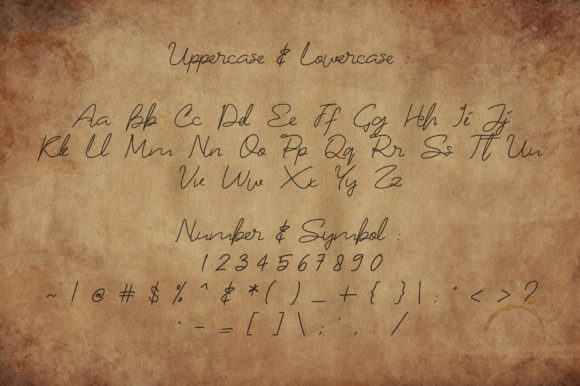 Uppercase & Lowercase :
Aa Bb Cc Dd Ee Ff Gg Hh Ii Jj
Kk Ll Mm Nn Oo Pp Qq Rr Ss Tt Uu
Vv Ww Xx Yy Zz
Number & Symbol :
1 2 3 4 5 6 7 8 9 0
~ ! @ # $ % ^ & * ( ) _ + { } | : " < > ?
` - = [ ] \ ; ' , . /